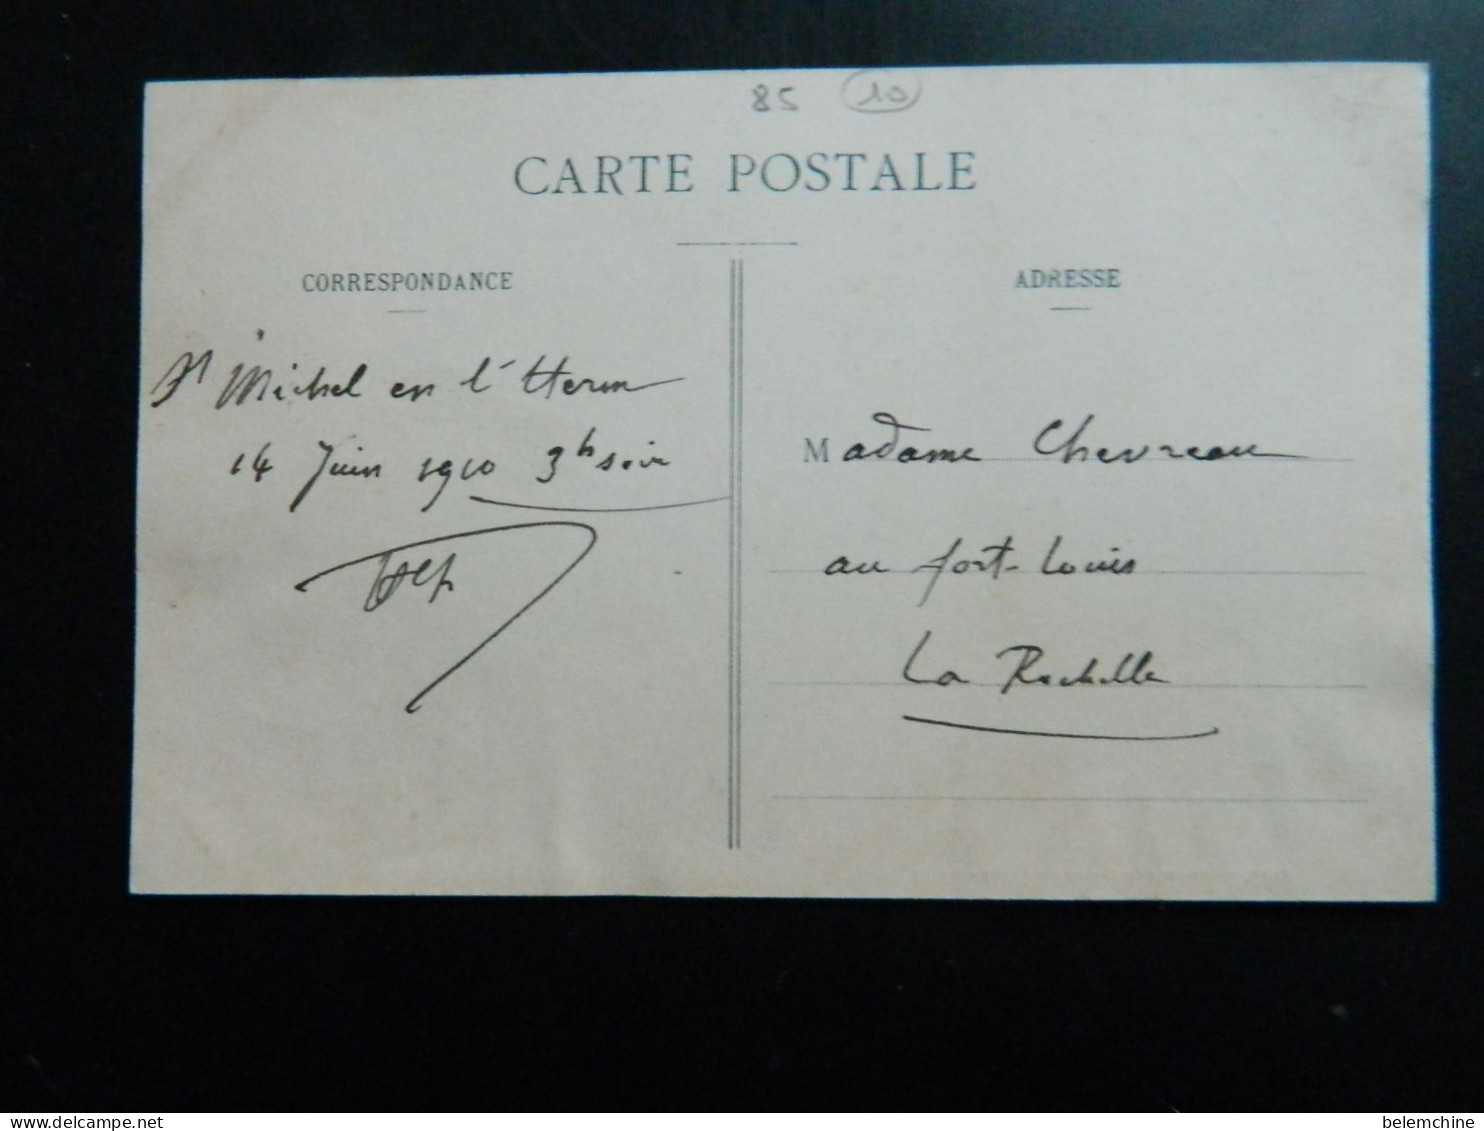 85 10
CARTE POSTALE
CORRESPONDANCE
St Michel en l'Herm
14 Juin 1910 3h soir
ADRESSE
Madame Chevreau
au fort-Louis
La Rochelle
delcampe.net
belemchine